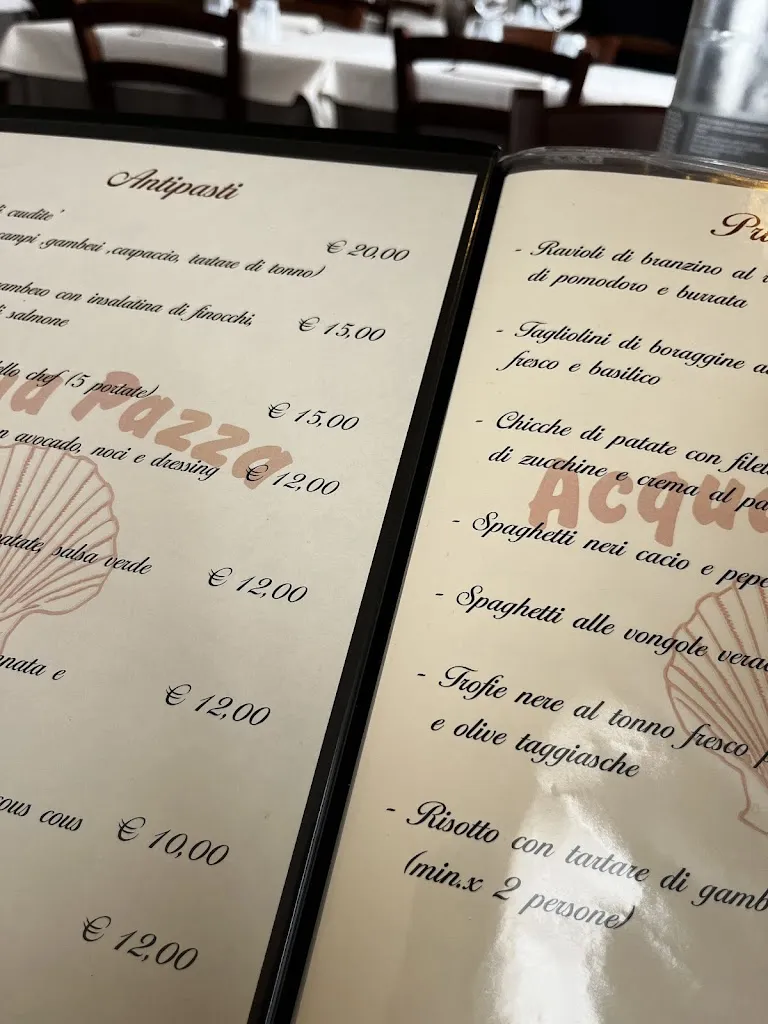 Antipasti
crudite'
gamberi, carpaccio, tartare di tonno) € 20,00
con insalatina di finocchi,
salmone € 15,00
chef (5 portate) € 15,00
Pazza
avocado, noci e dressing € 12,00
salsa verde € 12,00
e € 12,00
cous € 10,00
€ 12,00
- Ravioli di branzino al
di pomodoro e burrata
- Tagliolini di boraggine
fresco e basilico
- Chicche di patate con
di zucchine e crema al
- Spaghetti neri cacio e pepe
- Spaghetti alle vongole
- Trofie nere al tonno fresco
e olive taggiasche
- Risotto con tartare di
(min.x 2 persone)